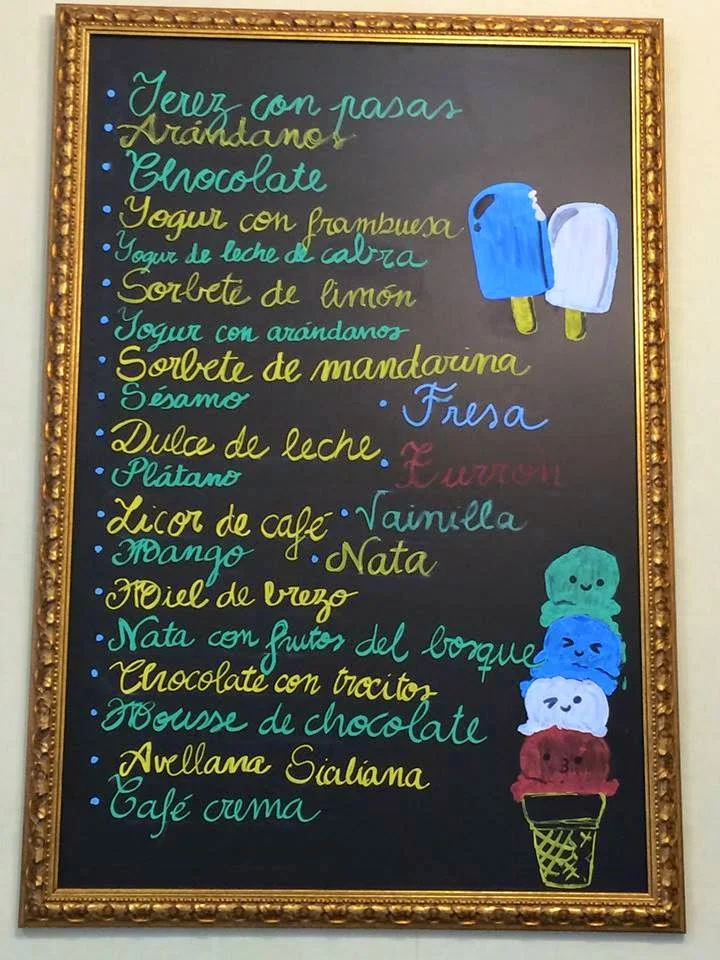 Jerez con pasas
Arándanos
Chocolate
Yogur con frambuesa
Yogur de leche de cabra
Sorbete de limón
Yogur con arándanos
Sorbete de mandarina
Sésamo
Fresa
Dulce de leche
Zurron
Plátano
Licor de café
Vainilla
Mango
Nata
Miel de brezo
Nata con frutos del bosque
Chocolate con trocitos
Mousse de chocolate
Avellana Siciliana
Café crema